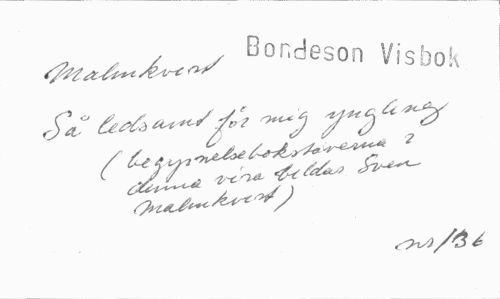 Malmkvist Bondeson Visbok
Så ledsamt för mig yngling
(begynnelsebokstäverna i
denna visa bildas Sven
Malmkvist)
nr/36